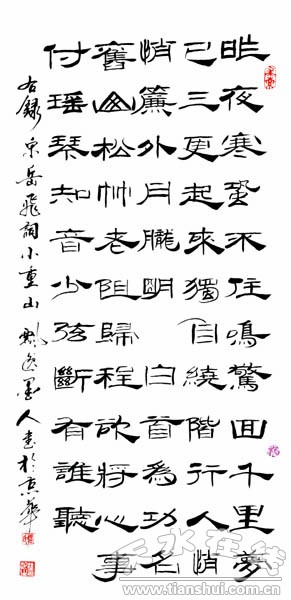 昨夜寒蛩不住鳴驚回千里夢
已三更起來獨自繞階行人悄
悄簾外月朧明白首為功名
舊山松竹老阻歸程欲將心事
付瑶琴知音少弦斷有誰聽
右錄宋岳飛詞小重山 飄逸墨人書於京華
天水在线
www.tianshui.com.cn